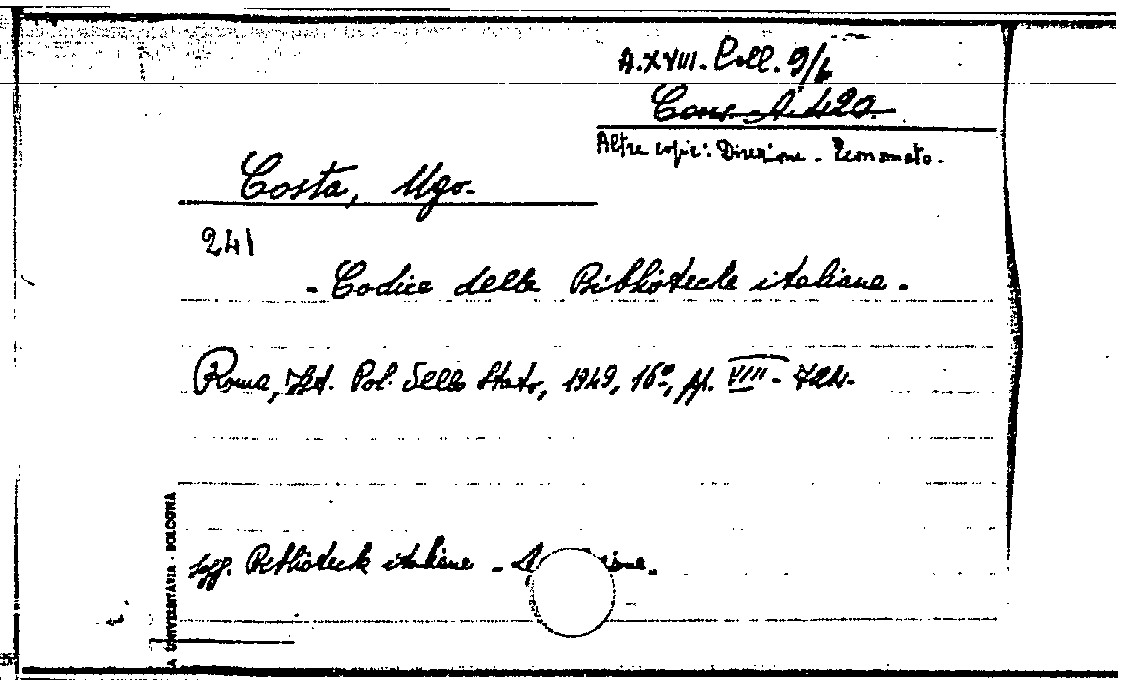 A.XVIII. Coll. 9/6
Cons. A. 420.
Altre copie: Direzione - Economato.
Costa, Ugo.
241
- Codice delle Biblioteche italiane.
Roma, Ist. Pol. dello Stato, 1949, 16º, pp. VIII - 724.
sogg. Biblioteche italiane -
A UNIVERSITARIA - BOLOGNA